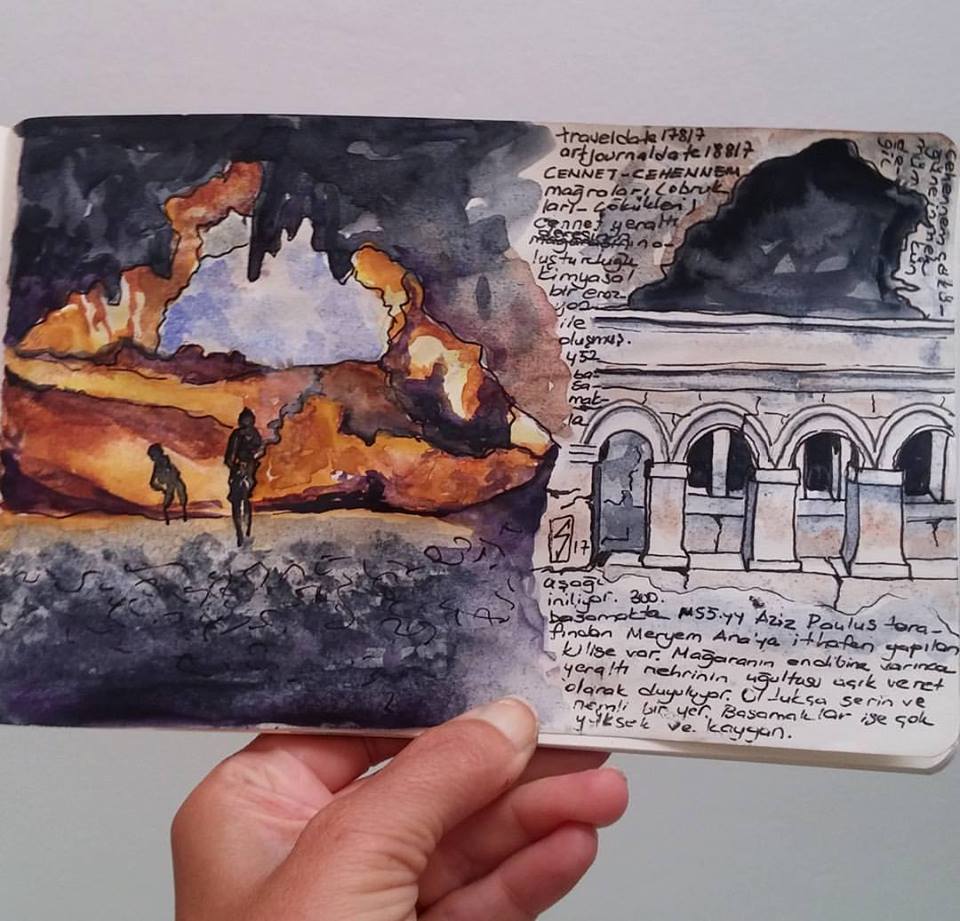 traveldate 17817
artjournaldate 18817
CENNET-CEHENNEM
mağraları, Çobruk
ları - Çökükleri!
Cennet yeraltı
deresinin o-
luşturduğu
kimyasal
bir eroz-
yon
ile
oluşmuş.
452
ba-
sa-
mak-
la
aşağı
iniliyor. 300.
basamakta MS5.yy Aziz Paulus tara-
fından Meryem Ana'ya ithafen yapılan
kilise var. Mağaranın endibine varınca
yeraltı nehrinin uğultusu açık ve net
olarak duyuluyor. Oldukça serin ve
nemli bir yer. Basamaklar ise çok
yüksek ve kaygan.
17
Cehennem